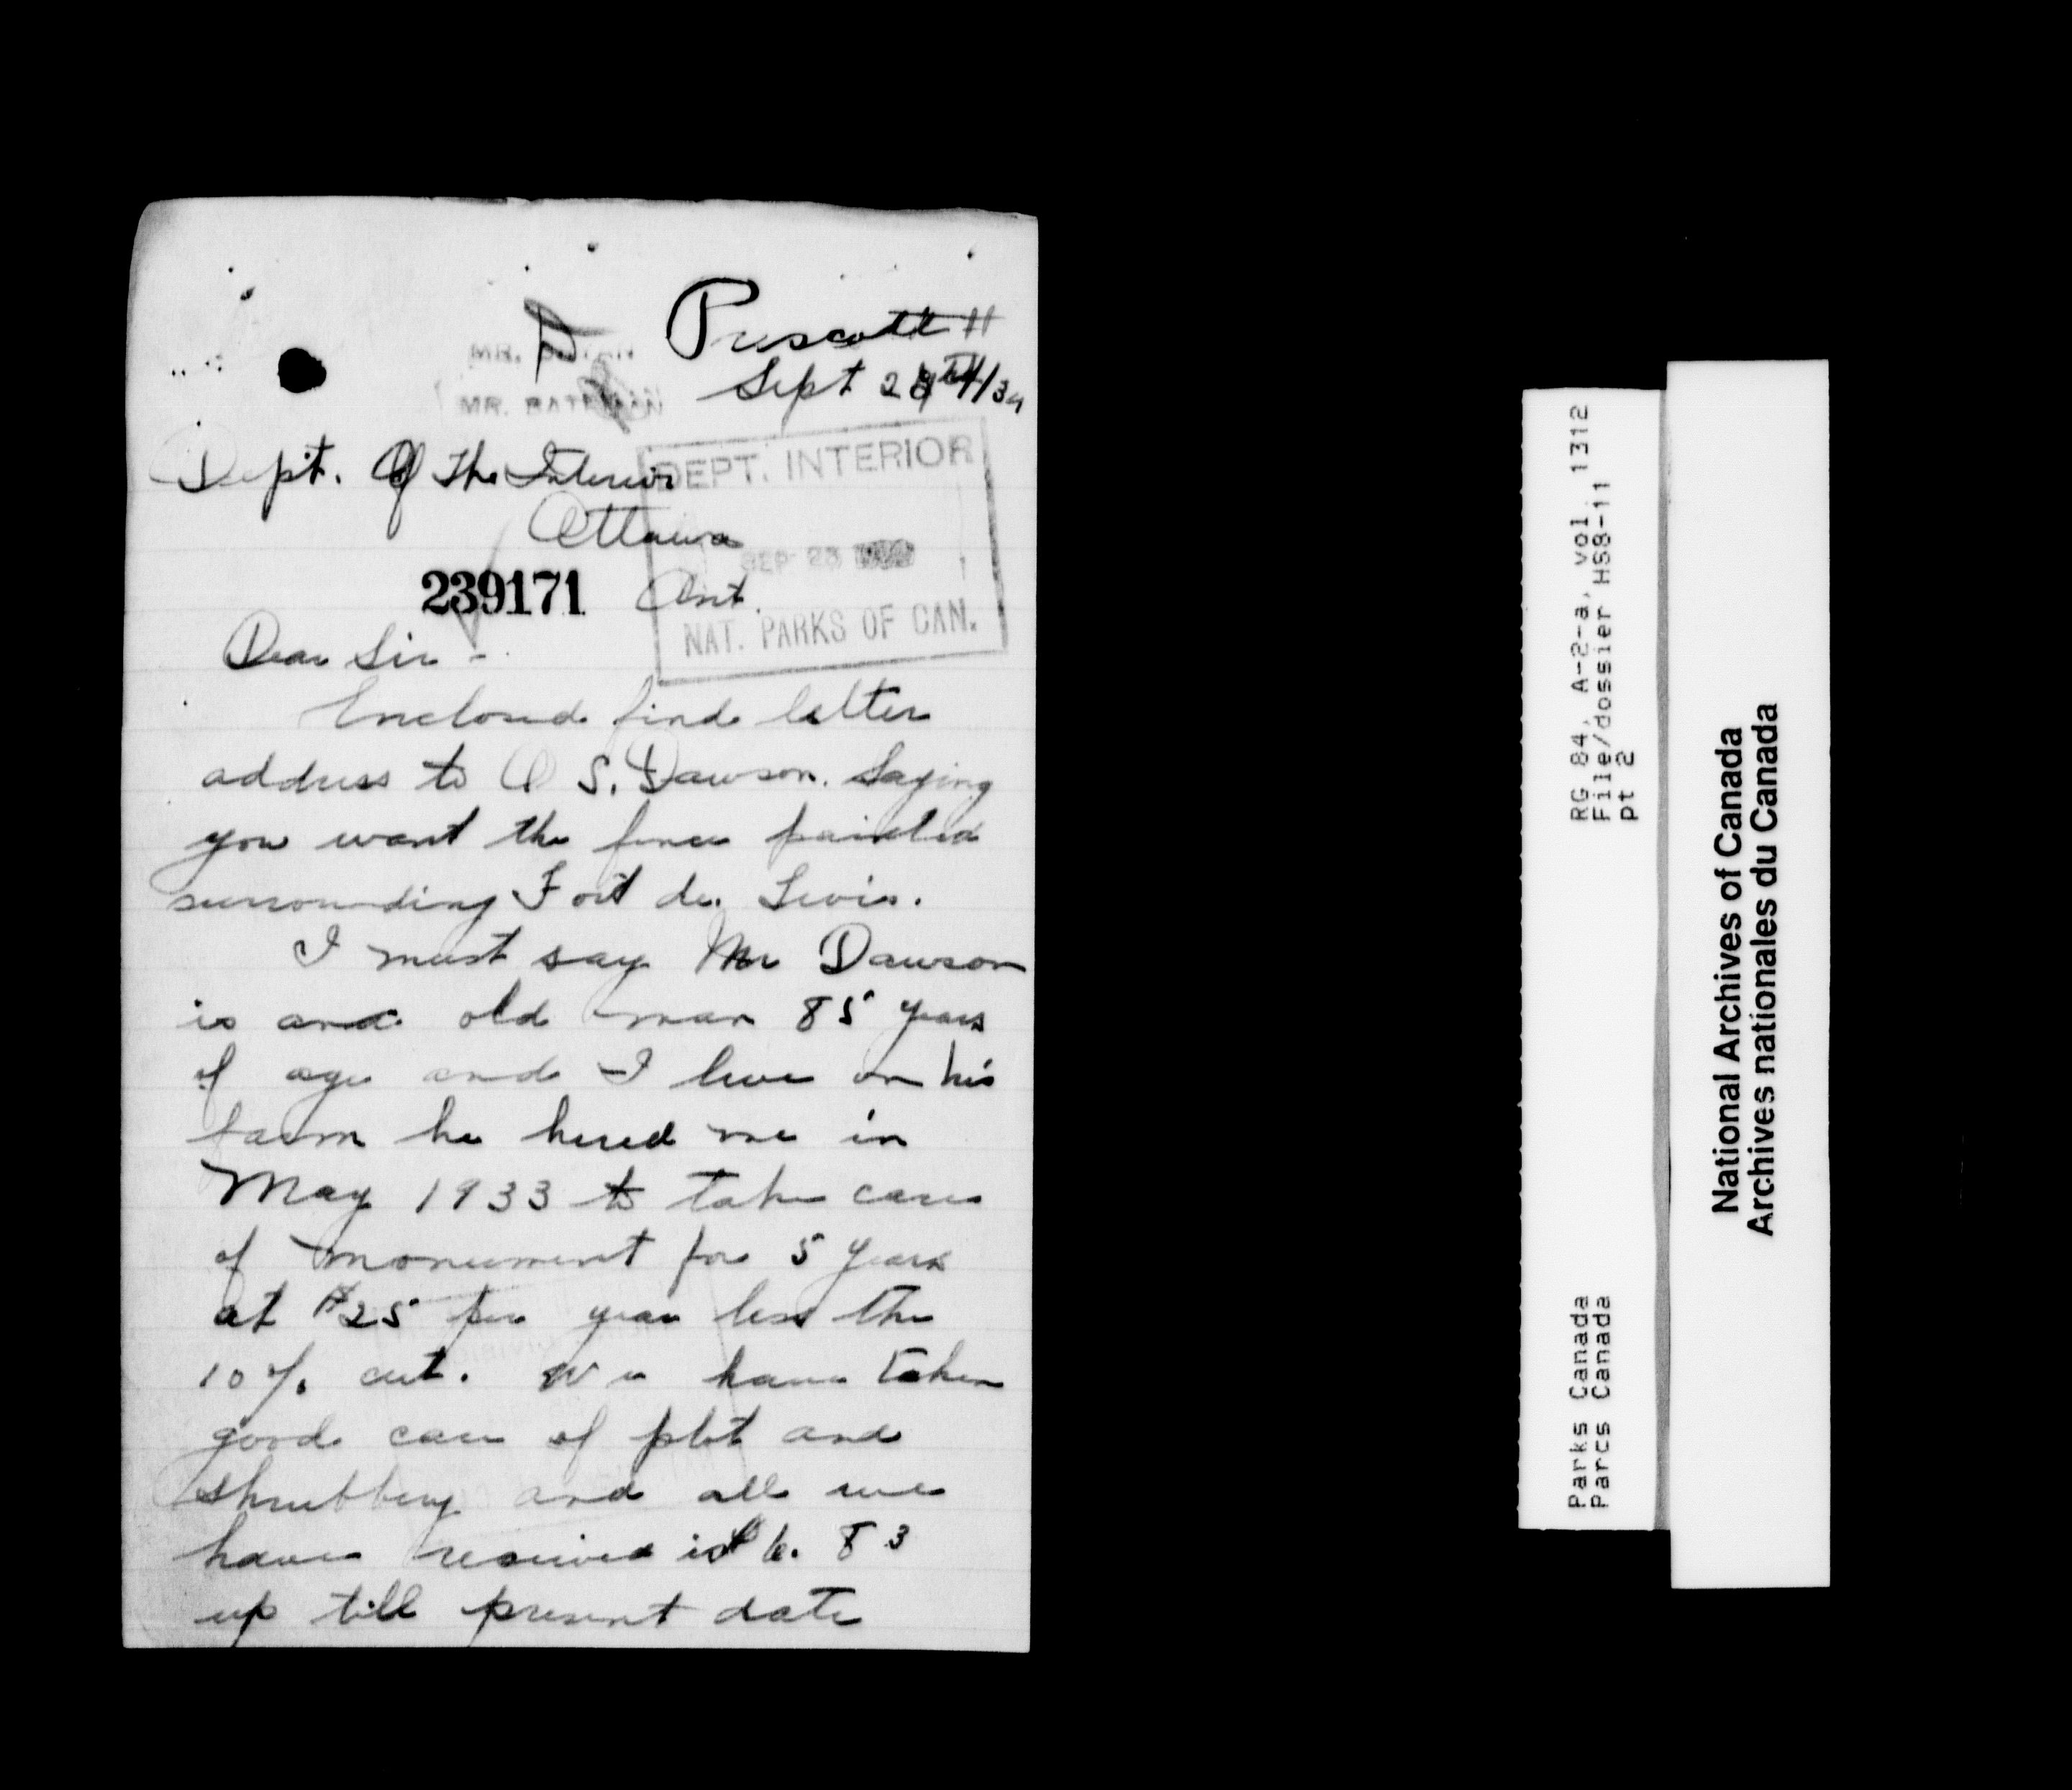 Prescott
Sept 28th/34
MR. BATEMAN
Dept. Of The Interior
Ottawa
Ont.
DEPT. INTERIOR
SEP 28
NAT. PARKS OF CAN.
239171
Dear Sir -
Enclosed find letter
address to O S. Dawson. Saying
you want the fence painted
surrounding Fort de Levis.
I must say Mr Dawson
is and old man 85 years
of age and I live on his
farm he hired me in
May 1933 to take care
of monument for 5 years
at $25 per year less the
10% cut. We have taken
good care of plot and
shrubbery and all we
have received is 6.83
up till present date
RG 84, A-2-a, vol. 1312
File/dossier HS8-11
pt 2
Parks Canada
Parcs Canada
National Archives of Canada
Archives nationales du Canada